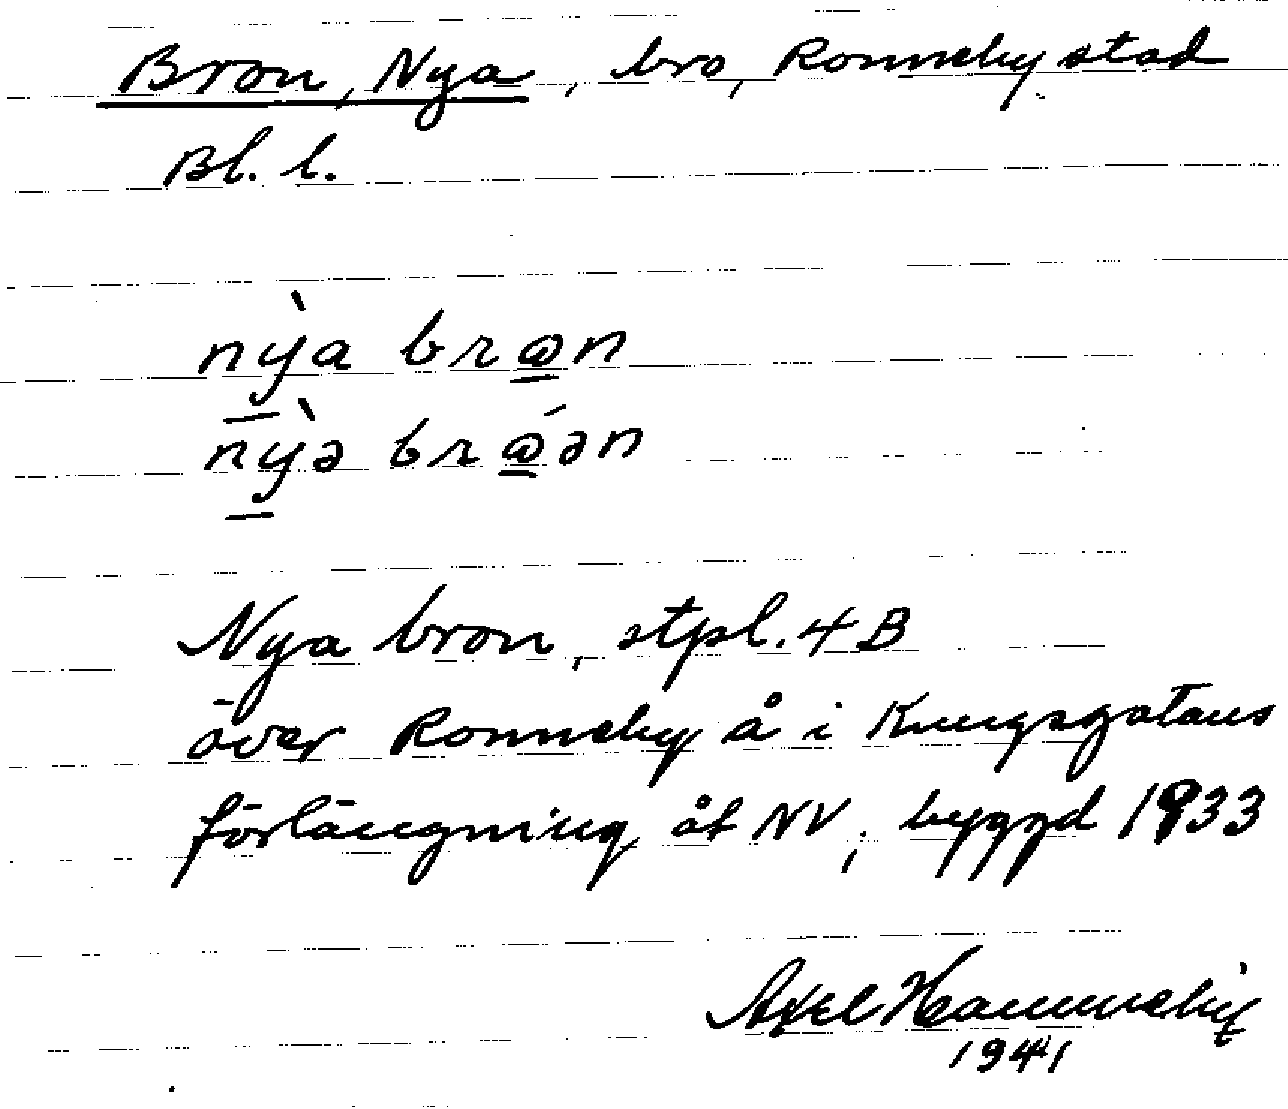 Bron, Nya, bro, Ronneby stad
Bl. l.
nỳa brωn
nỳə brώən
Nya bron, stpl. 4 B
över Ronneby å i Kungsgatans
förlängning åt NV, byggd 1933
Axel Hammeby
1941